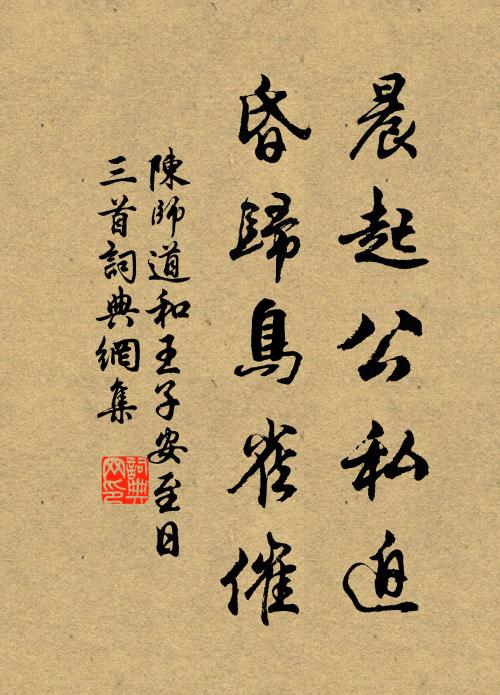 晨起公私迫
昏歸鳥雀催
陳師道和王子安至日
三首詞典網集
詞典
网印